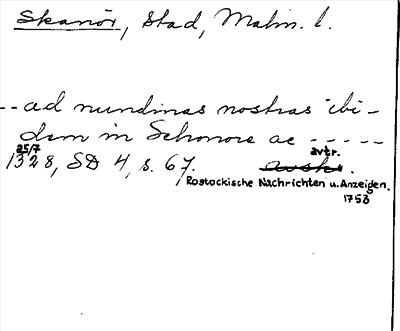 Skanör, Stad, Malm. l.
-- ad nundinas nostras ibi-
dem in Schonore ac -----
25/7 avtr.
1328, SD 4, s. 67. avskr.
Rostockische Nachrichten u. Anzeigen.
1753